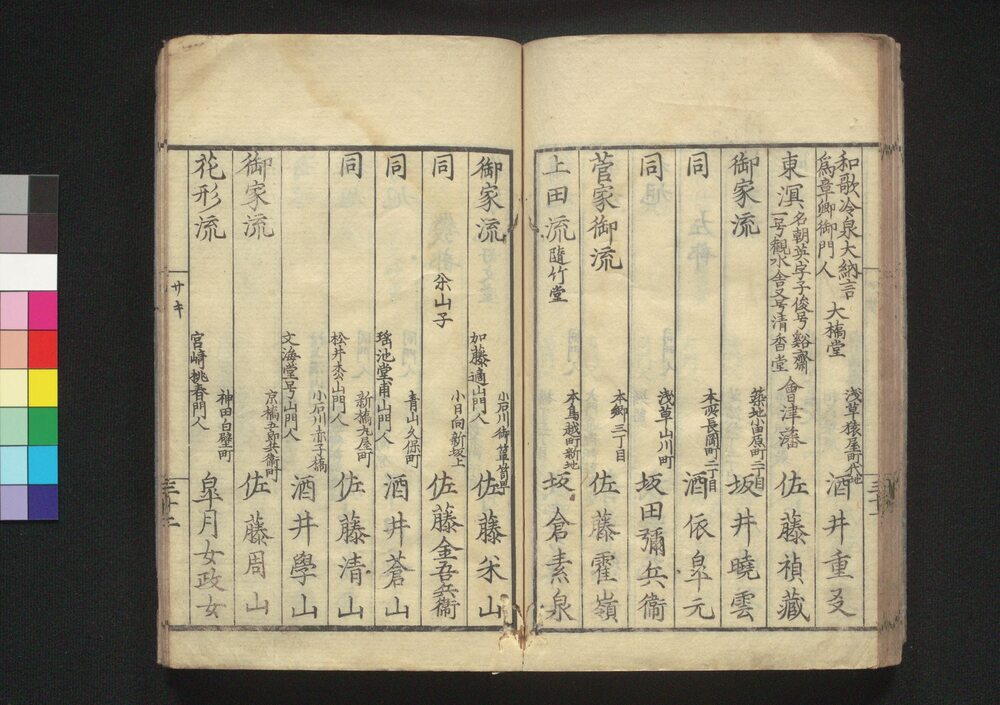 和歌冷泉大納言
為章卿御門人
大橋堂
浅草猿屋町代地
酒井重爻
東溟
名朝英字子俊号谿齋
一号觀水舎又号清香堂
會津藩
佐藤禎藏
御家流
築地小田原町二丁目
坂井曉雲
同
本所長岡町二丁目
酒依泉元
同
浅草山川町
坂田彌兵衞
菅家御流
本郷三丁目
佐藤霍嶺
上田流
隨竹堂
本鳥越町新地
坂倉素泉
御家流
小石川御箪笥町
加藤適山門人
佐藤米山
同
米山子
小日向新坂上
佐藤金吾兵衞
同
青山久保町
瑤池堂甫山門人
酒井蒼山
同
新橋丸屋町
桧井泰山門人
佐藤清山
小石川赤子橋
文海堂号山門人
酒井學山
御家流
京橋五郎兵衞町
佐藤周山
花形流
神田白壁町
宮崎桃春門人
皐月女政女
サキ
三十二